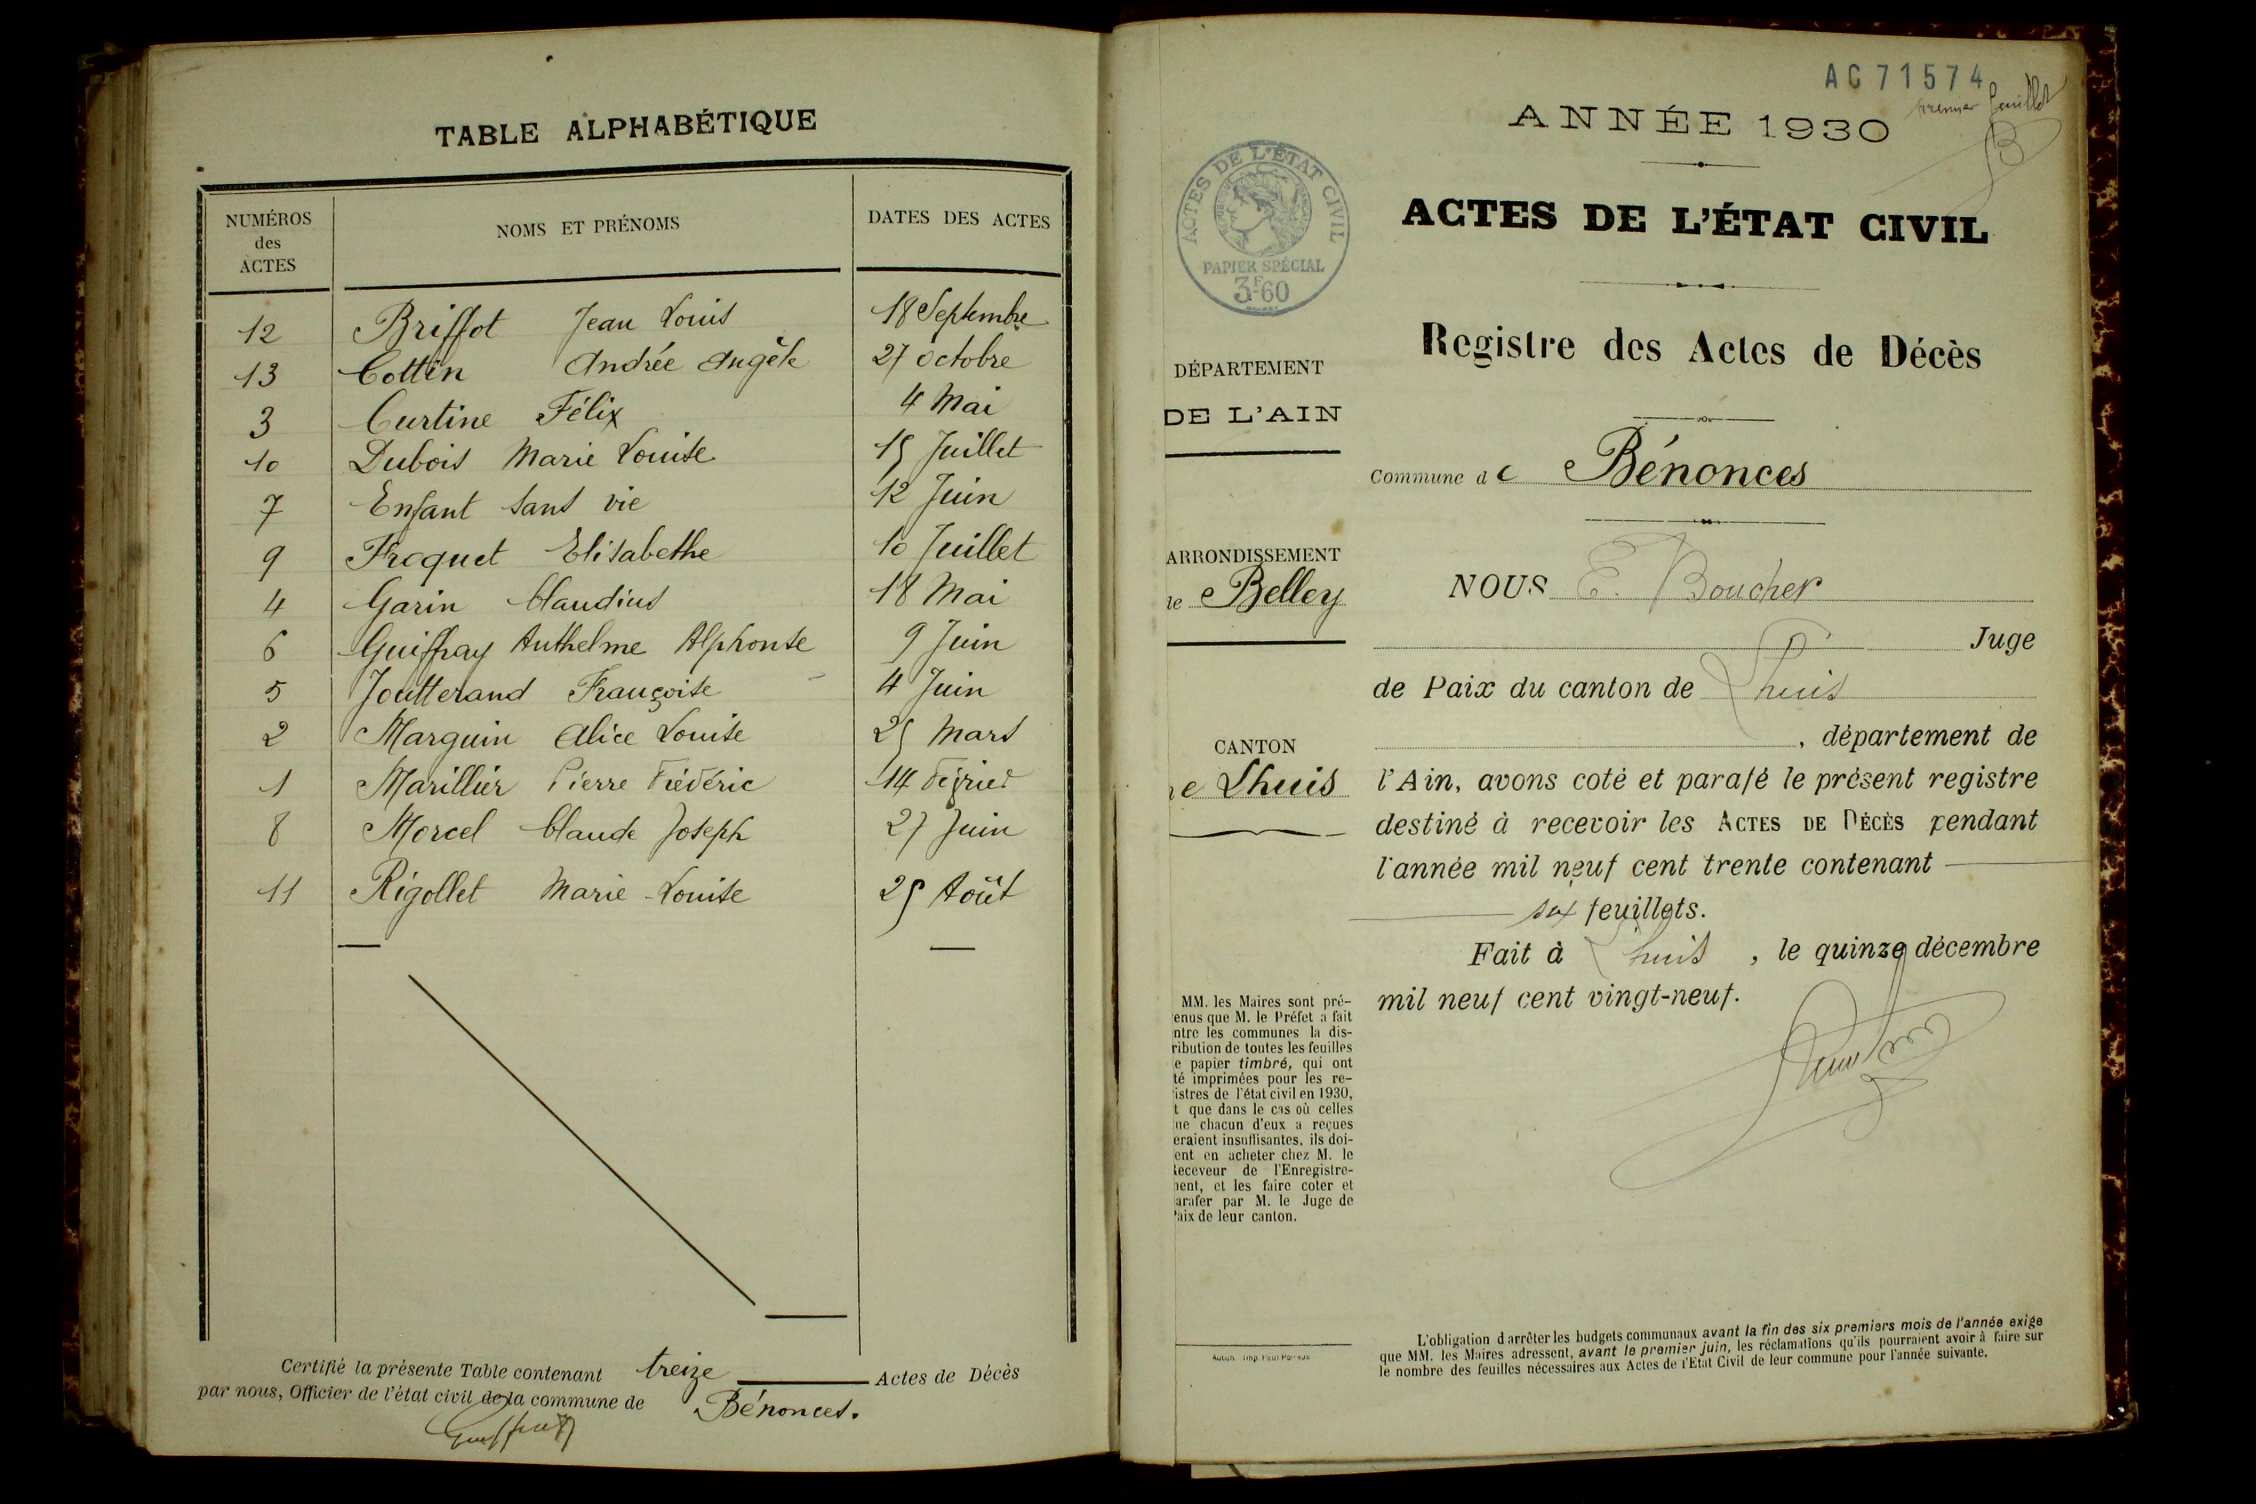 TABLE ALPHABÉTIQUE
NUMÉROS
des
ACTES
NOMS ET PRÉNOMS
DATES DES ACTES
12 Briffot Jean Louis 18 Septembre
13 Cottin Andrée Angèle 27 Octobre
3 Curtine Félix 4 Mai
10 Dubois Marie Louise 15 Juillet
7 Enfant sans vie 12 Juin
9 Froquet Elisabethe 10 Juillet
4 Garin Claudius 18 Mai
6 Guiffray Anthelme Alphonse 9 Juin
5 Joutterand Françoise 4 Juin
2 Marguin Alice Louise 25 Mars
1 Marillier Pierre Frédéric 14 Février
8 Morcel Claude Joseph 27 Juin
11 Rigollet Marie-Louise 25 Août
Certifié la présente Table contenant treize Actes de Décès
par nous, Officier de l'état civil de la commune de Bénonces.
AC 71574
premier feuillet
ANNÉE 1930
ACTES DE L'ÉTAT CIVIL
PAPIER SPÉCIAL
3F60
ACTES DE L'ÉTAT CIVIL
Registre des Actes de Décès
DÉPARTEMENT
DE L'AIN
Commune de Bénonces
ARRONDISSEMENT
le Belley
CANTON
e Lhuis
NOUS E. Boucher
Juge
de Paix du canton de Lhuis
, département de
l'Ain, avons coté et parafé le présent registre
destiné à recevoir les ACTES DE DÉCÈS pendant
l'année mil neuf cent trente contenant
six feuillets.
Fait à Lhuis, le quinze décembre
mil neuf cent vingt-neuf.
MM. les Maires sont pré-
enus que M. le Préfet a fait
ntre les communes la dis-
ribution de toutes les feuilles
e papier timbré, qui ont
té imprimées pour les re-
istres de l'état civil en 1930,
t que dans le cas où celles
ue chacun d'eux a reçues
eraient insuffisantes, ils doi-
ent en acheter chez M. le
Receveur de l'Enregistre-
ment, et les faire coter et
arafer par M. le Juge de
Paix de leur canton.
L'obligation d'arrêter les budgets communaux avant la fin des six premiers mois de l'année exige
que MM. les Maires adressent, avant le premier juin, les réclamations qu'ils pourraient avoir à faire sur
le nombre des feuilles nécessaires aux Actes de l'Etat Civil de leur commune pour l'année suivante.